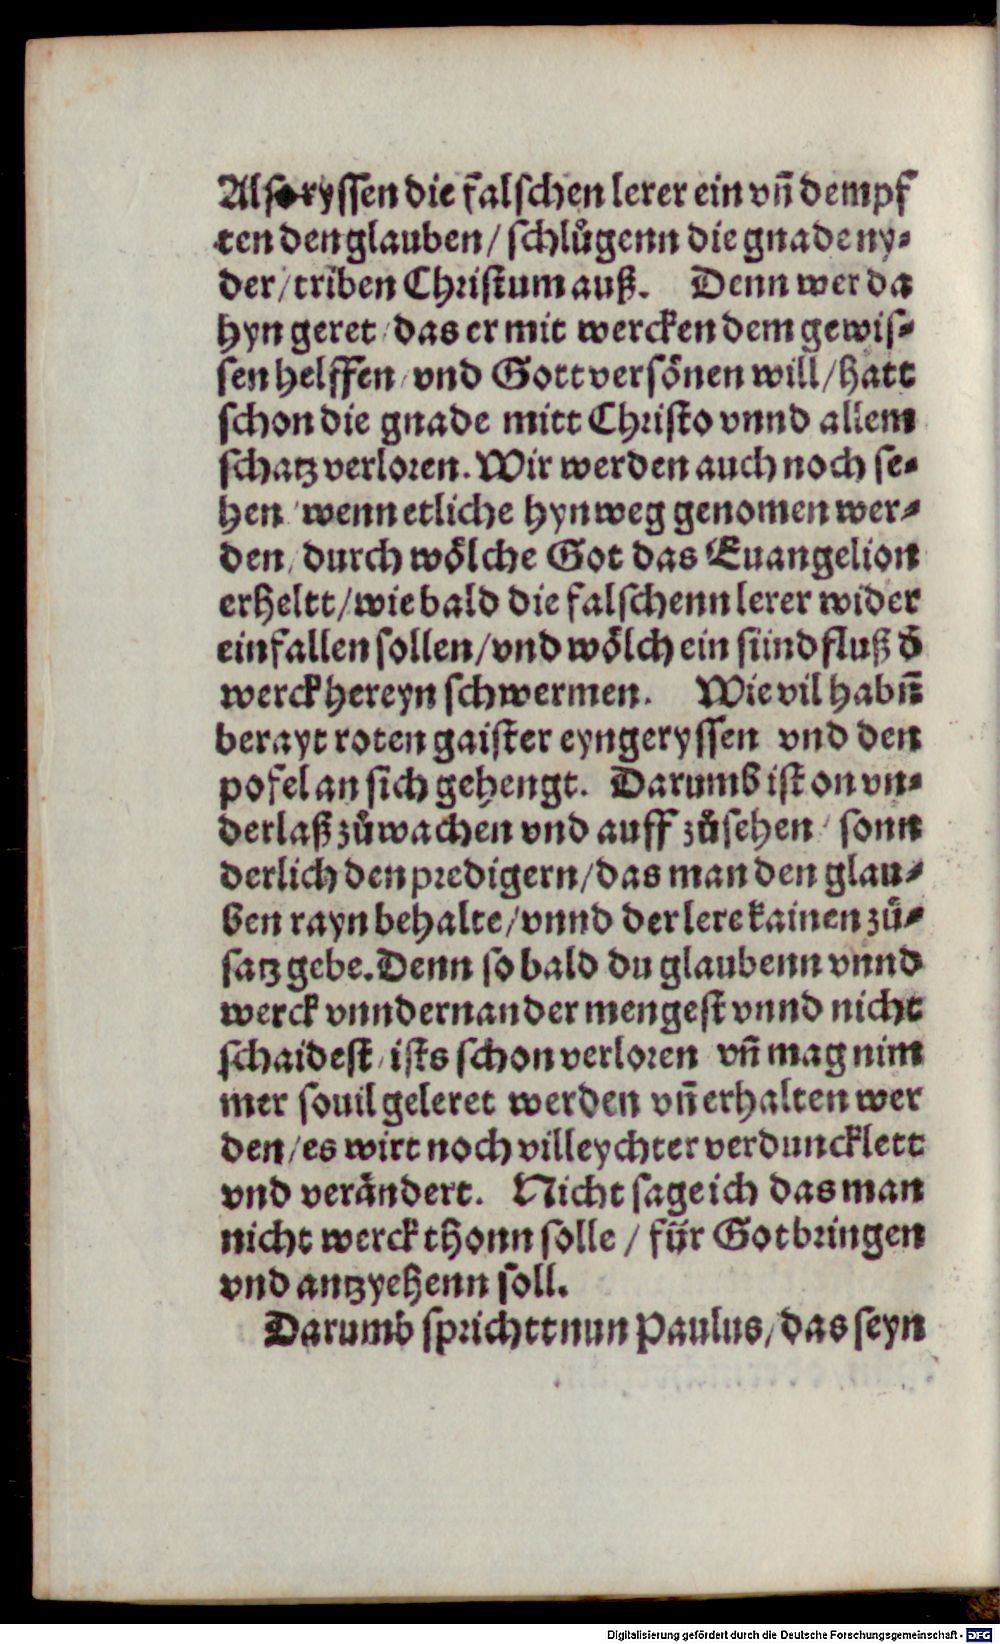 Also ryssen die falschen lerer ein vn̄ dempf
ten den glauben / schlůgenn die gnade ny⸗
der / triben Christum auß. Denn wer da
hyn geret / das er mit wercken dem gewis⸗
sen helffen / vnd Gott versönen will / hatt
schon die gnade mitt Christo vnnd allem
schatz verloren. Wir werden auch noch se⸗
hen / wenn etliche hynweg genomen wer⸗
den / durch wölche Got das Euangelion
erheltt / wie bald die falschenn lerer wider
einfallen sollen / vnd wölch ein sündfluß d̄
werck hereyn schwermen. Wie vil habn̄
berayt roten gaister eyngeryssen vnd den
pofel an sich gehengt. Darumb ist on vn⸗
derlaß zůwachen vnd auff zůsehen / sonn
derlich den predigern / das man den glau⸗
ben rayn behalte / vnnd der lere kainen zů⸗
satz gebe. Denn so bald du glaubenn vnnd
werck vnndernander mengest vnnd nicht
schaidest / ists schon verloren vn̄ mag nim
mer souil geleret werden vn̄ erhalten wer
den / es wirt noch villeychter verduncklett
vnd verändert. Nicht sage ich das man
nicht werck thonn solle / für Got bringen
vnd antzyehenn soll.
Darumb sprichtt nun Paulus / das seyn
Digitalisierung gefördert durch die Deutsche Forschungsgemeinschaft - DFG